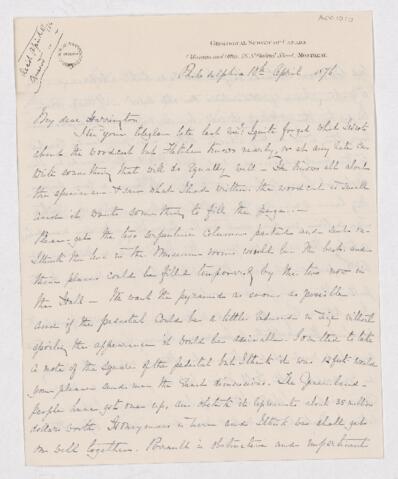 GEOLOGICAL SURVEY OF CANADA
Museum and Office, St. Gabriel Street, MONTREAL.
Philadelphia 18th April 1876
My dear Harrington
your telegram late last night I quite forget what I wrote
about the woodcut but knows nearly, or at any rate can
write something that will do equally well – He knows all about
the specimens & saw what I had written. The woodcut is small
and it wants something to fill the page. –
Please get the two serpentine columns packed and sent on
I think the two in the Museum rooms would be the best and
their places could be filled temporarily by the two now in
the Hall – We want the pyramids as soon as possible
and if the pedestal could be a little reduced in size without
spoiling the appearance it would be advisable. I omitted to take
a note of the square of the pedestal but I think it was 12 feet would
you please send me the exact dimensions. The
people have got one up, an obelisk it represents about 35 million
dollars worth. Honeyman is here and I think we shall get
on well together. Perrault is obstructive and impertinent